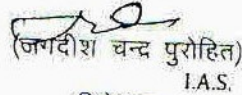 (जगदीश चन्द्र पुरोहित)
I.A.S.